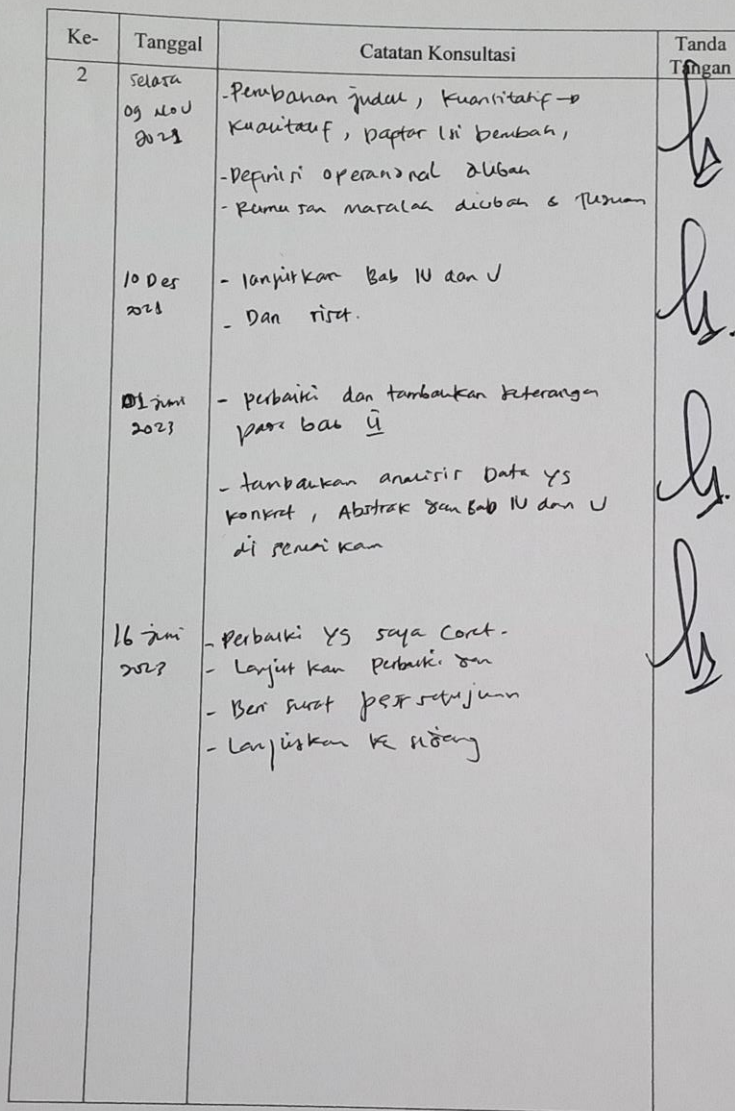 Ke-
Tanggal
Catatan Konsultasi
Tanda
Tangan
2
Selasa
09 Nov
2021
- Perubahan judul, Kuantitatif →
Kualitatif, Daptar Isi berubah,
- Definisi operasional diubah
- Rumusan Masalah diubah & Tujuan
10 Des
2021
- lanjutkan Bab IV dan V
- Dan riset.
01 juni
2023
- perbaiki dan tambahkan keterangan
pada bab II
- tambahkan analisis Data yg
konkret, Abstrak dan Bab IV dan V
di sesuaikan
16 juni
2023
- Perbaiki yg saya Coret.
- Lanjutkan Perbaiki dan
- Beri surat persetujuan
- Lanjutkan ke sidang